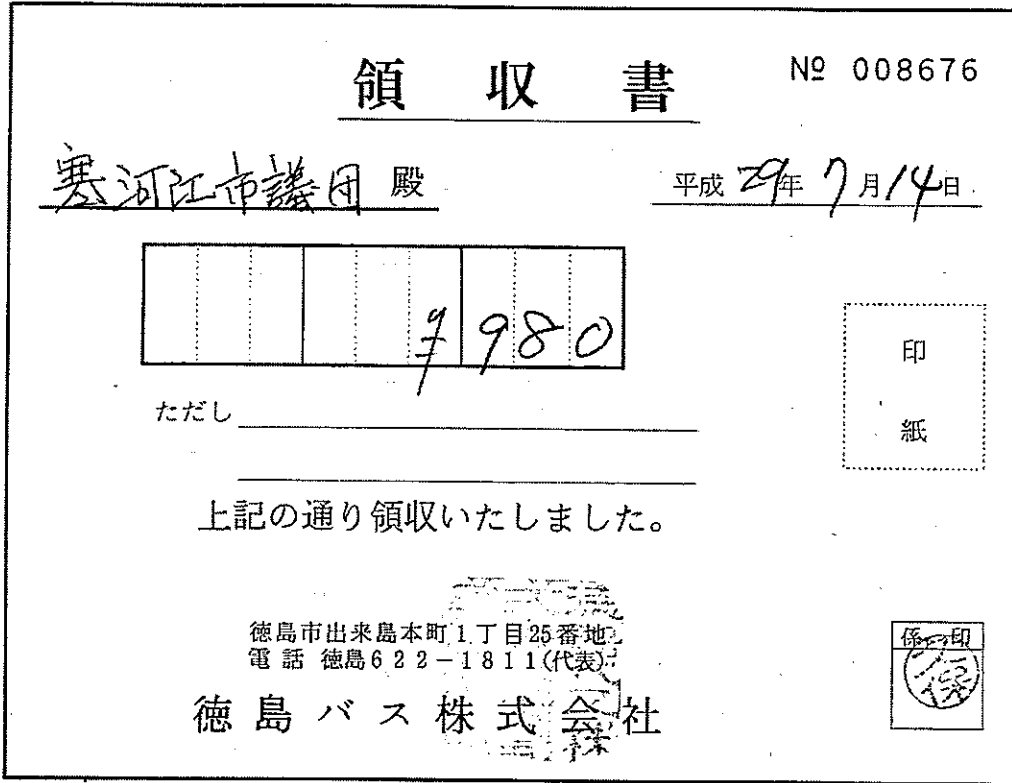 領収書
№ 008676
寒河江市議団 殿
平成 29年 7月 14日
¥980
印
紙
ただし
上記の通り領収いたしました。
徳島市出来島本町1丁目25番地
電話 徳島622-1811(代表)
徳島バス株式会社
係印